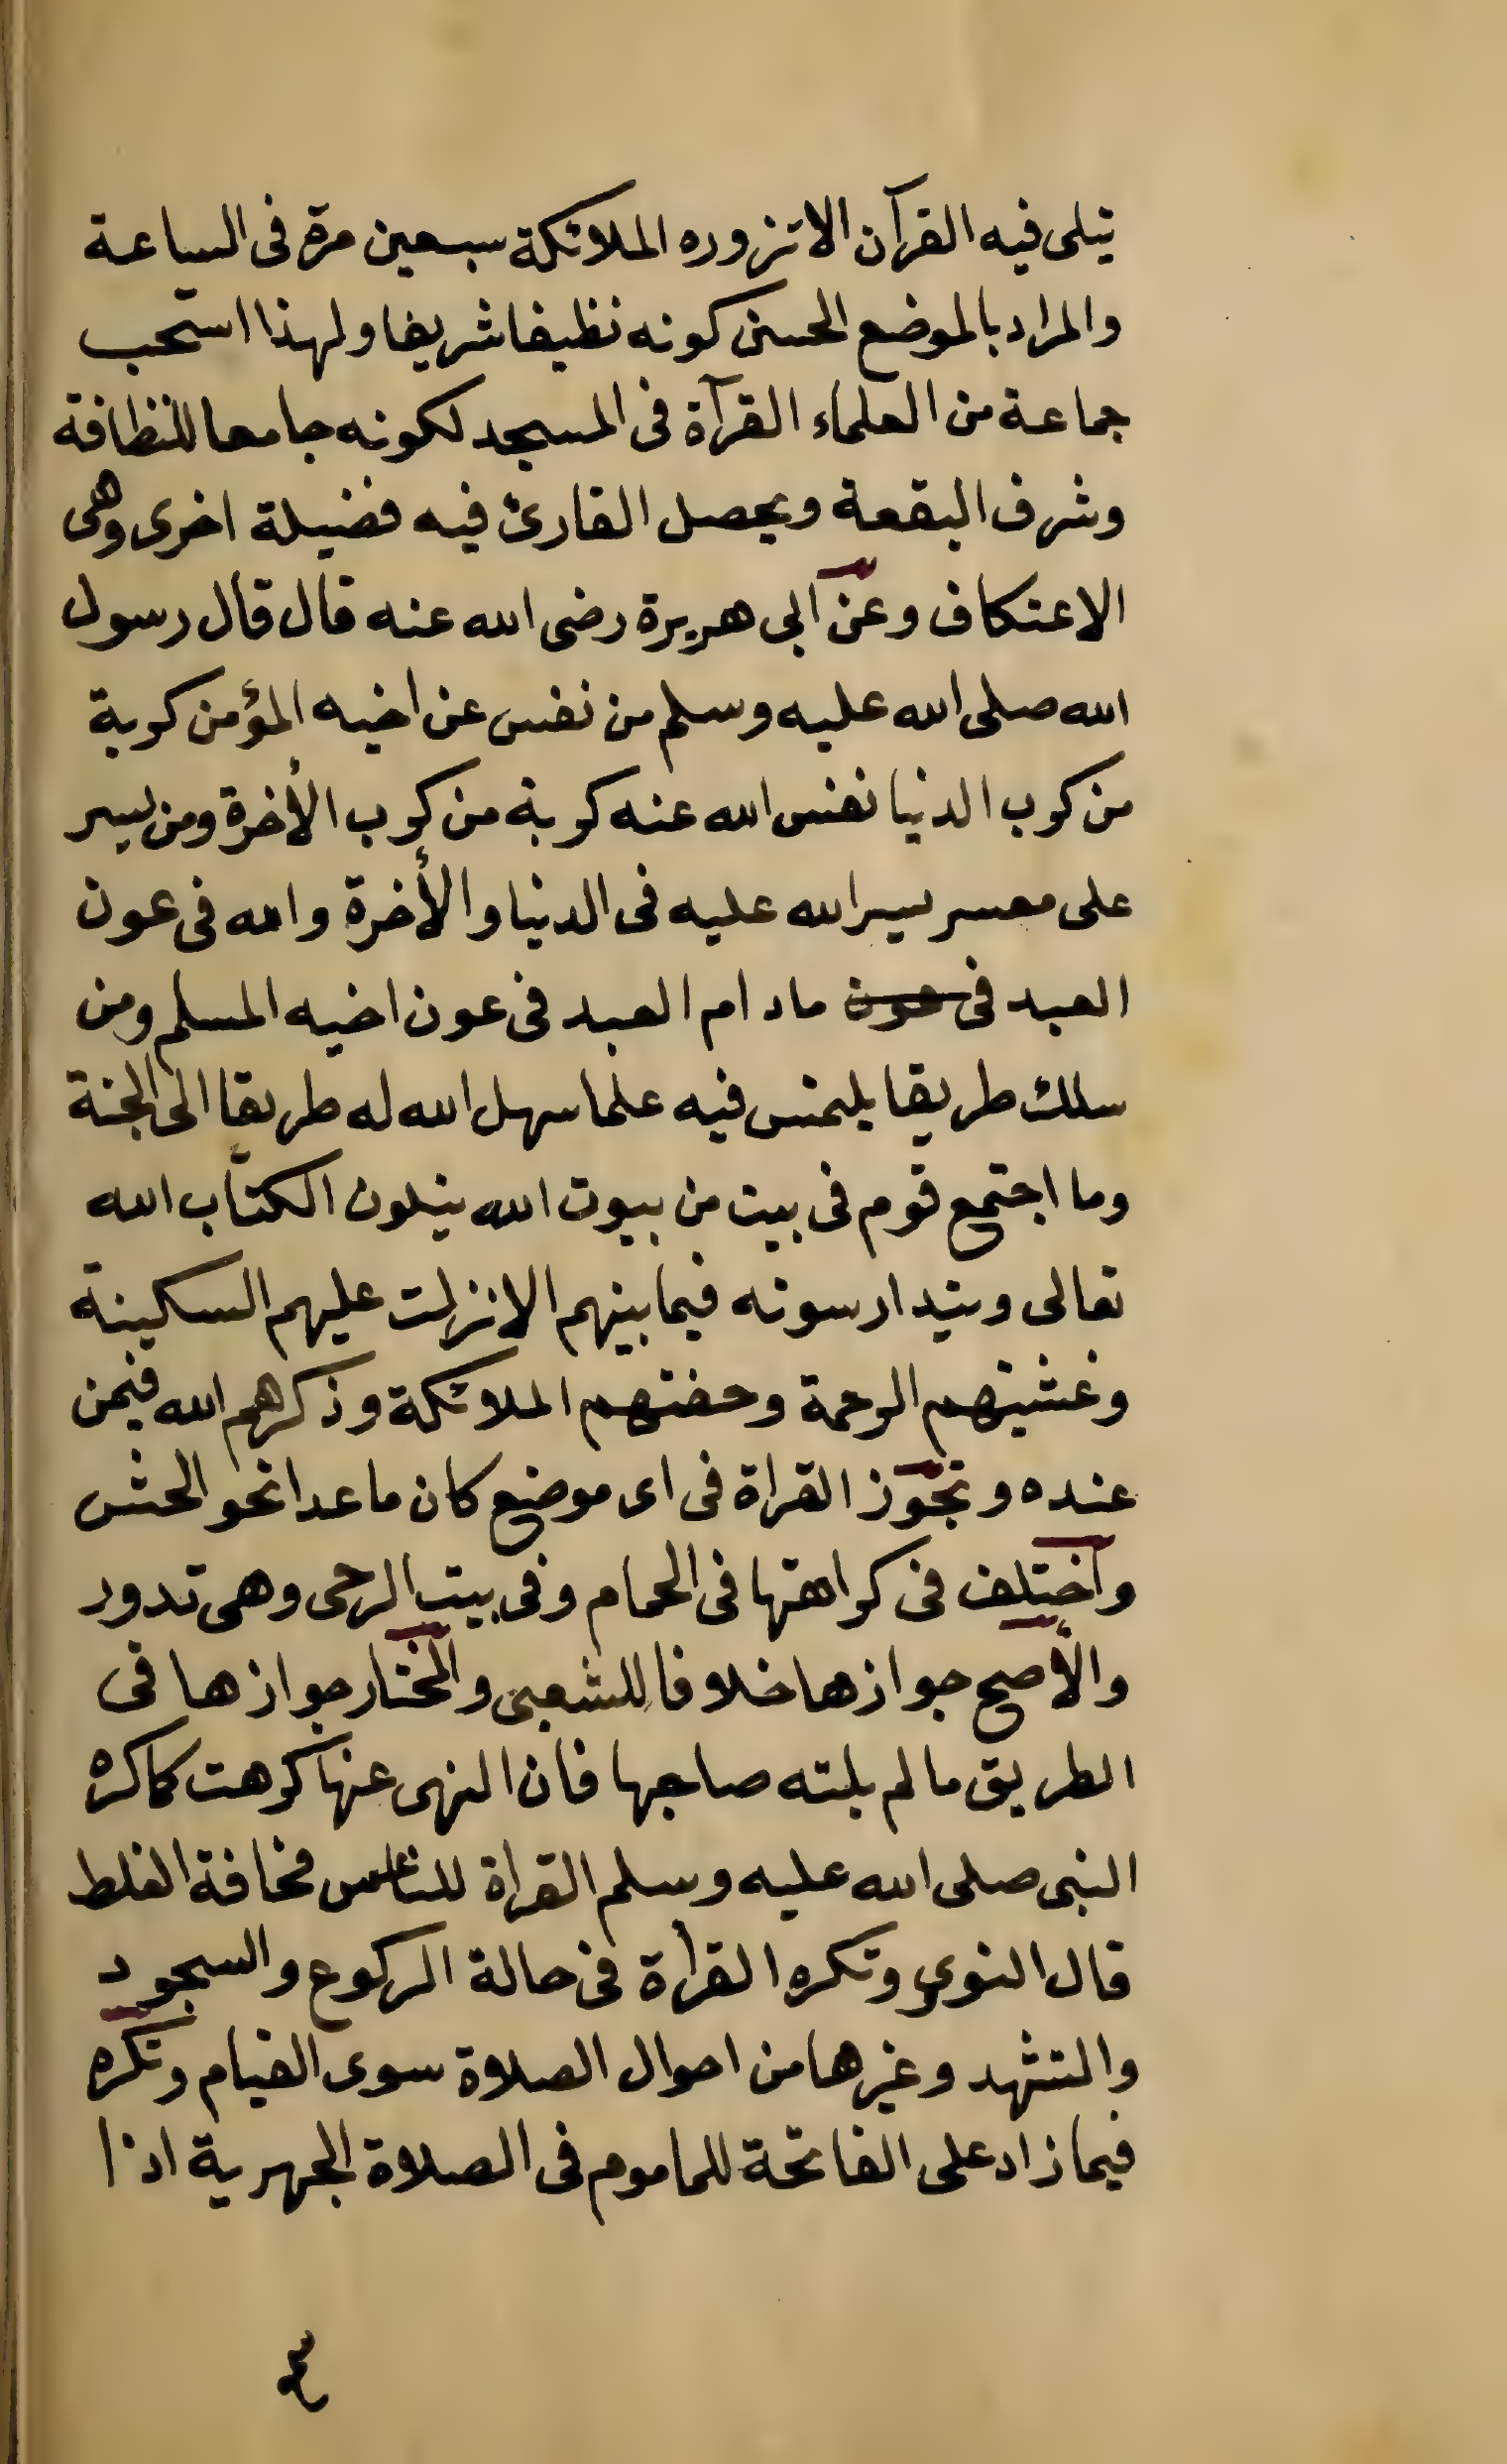 يتلى فيه القرآن الا تزوره الملائكة سبعين مرة فى الساعة
والمراد بالموضع الحسن كونه نظيفا شريفا ولهذا استحب
جماعة من العلماء القرآة فى المسجد لكونه جامعا للنظافة
وشرف البقعة ويحصل القارئ فيه فضيلة اخرى وهى
الاعتكاف وعن ابى هريرة رضى الله عنه قال قال رسول
الله صلى الله عليه وسلم من نفس عن اخيه المؤمن كربة
من كرب الدنيا نفس الله عنه كربة من كرب الأخرة ومن يسر
على معسر يسر الله عليه فى الدنيا والأخرة والله فى عون
العبد فى عون ما دام العبد فى عون اخيه المسلم ومن
سلك طريقا يلتمس فيه علما سهل الله له طريقا الى الجنة
وما اجتمع قوم فى بيت من بيوت الله يتلون الكتاب الله
تعالى ويتدارسونه فيما بينهم الا نزلت عليهم السكينة
وغشيتهم الرحمة وحفتهم الملائكة وذكرهم الله فيمن
عنده وتجوز القراة فى اى موضع كان ما عدا نحو الحش
واختلف فى كراهتها فى الحمام وفى بيت الرحى وهى تدور
والأصح جوازها خلافا للشعبى والمختار جوازها فى
الطريق ما لم يلته صاحبها فان النهى عنها كرهت كما كره
النبى صلى الله عليه وسلم القراة للناعس مخافة الغلط
قال النوي وتكره القرأة فى حالة الركوع والسجود
والتشهد وغيرها من احوال الصلاة سوى القيام وتكره
فيما زاد على الفاتحة للماموم فى الصلاة الجهرية اذا